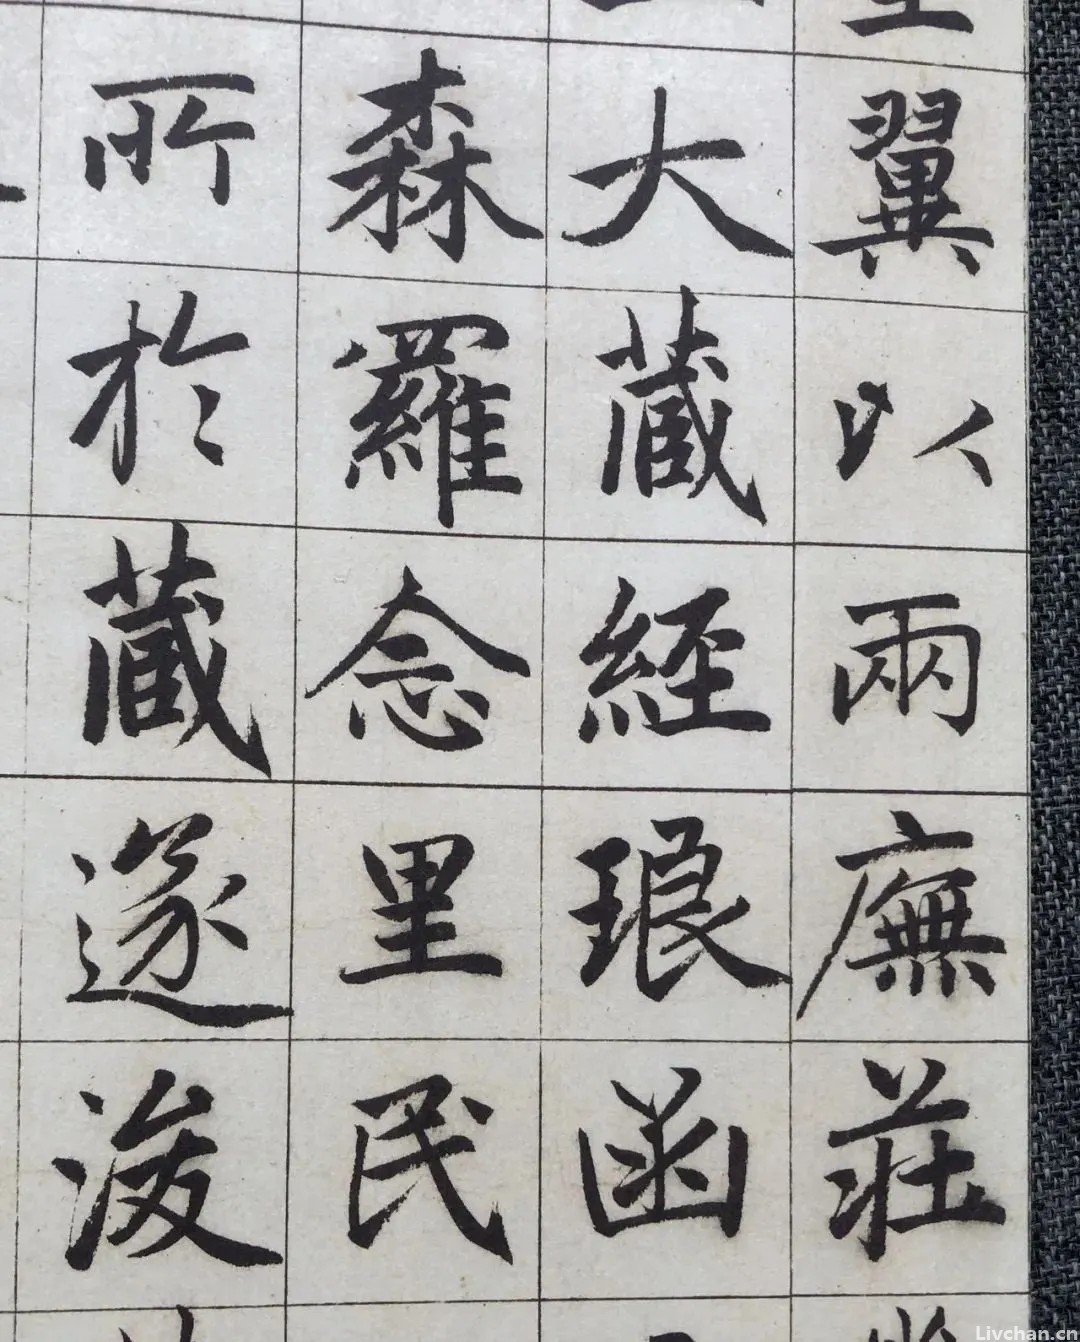 翼以兩廡莊
大藏経琅函
森羅念里民
所於藏遂浚
Livchan.cn